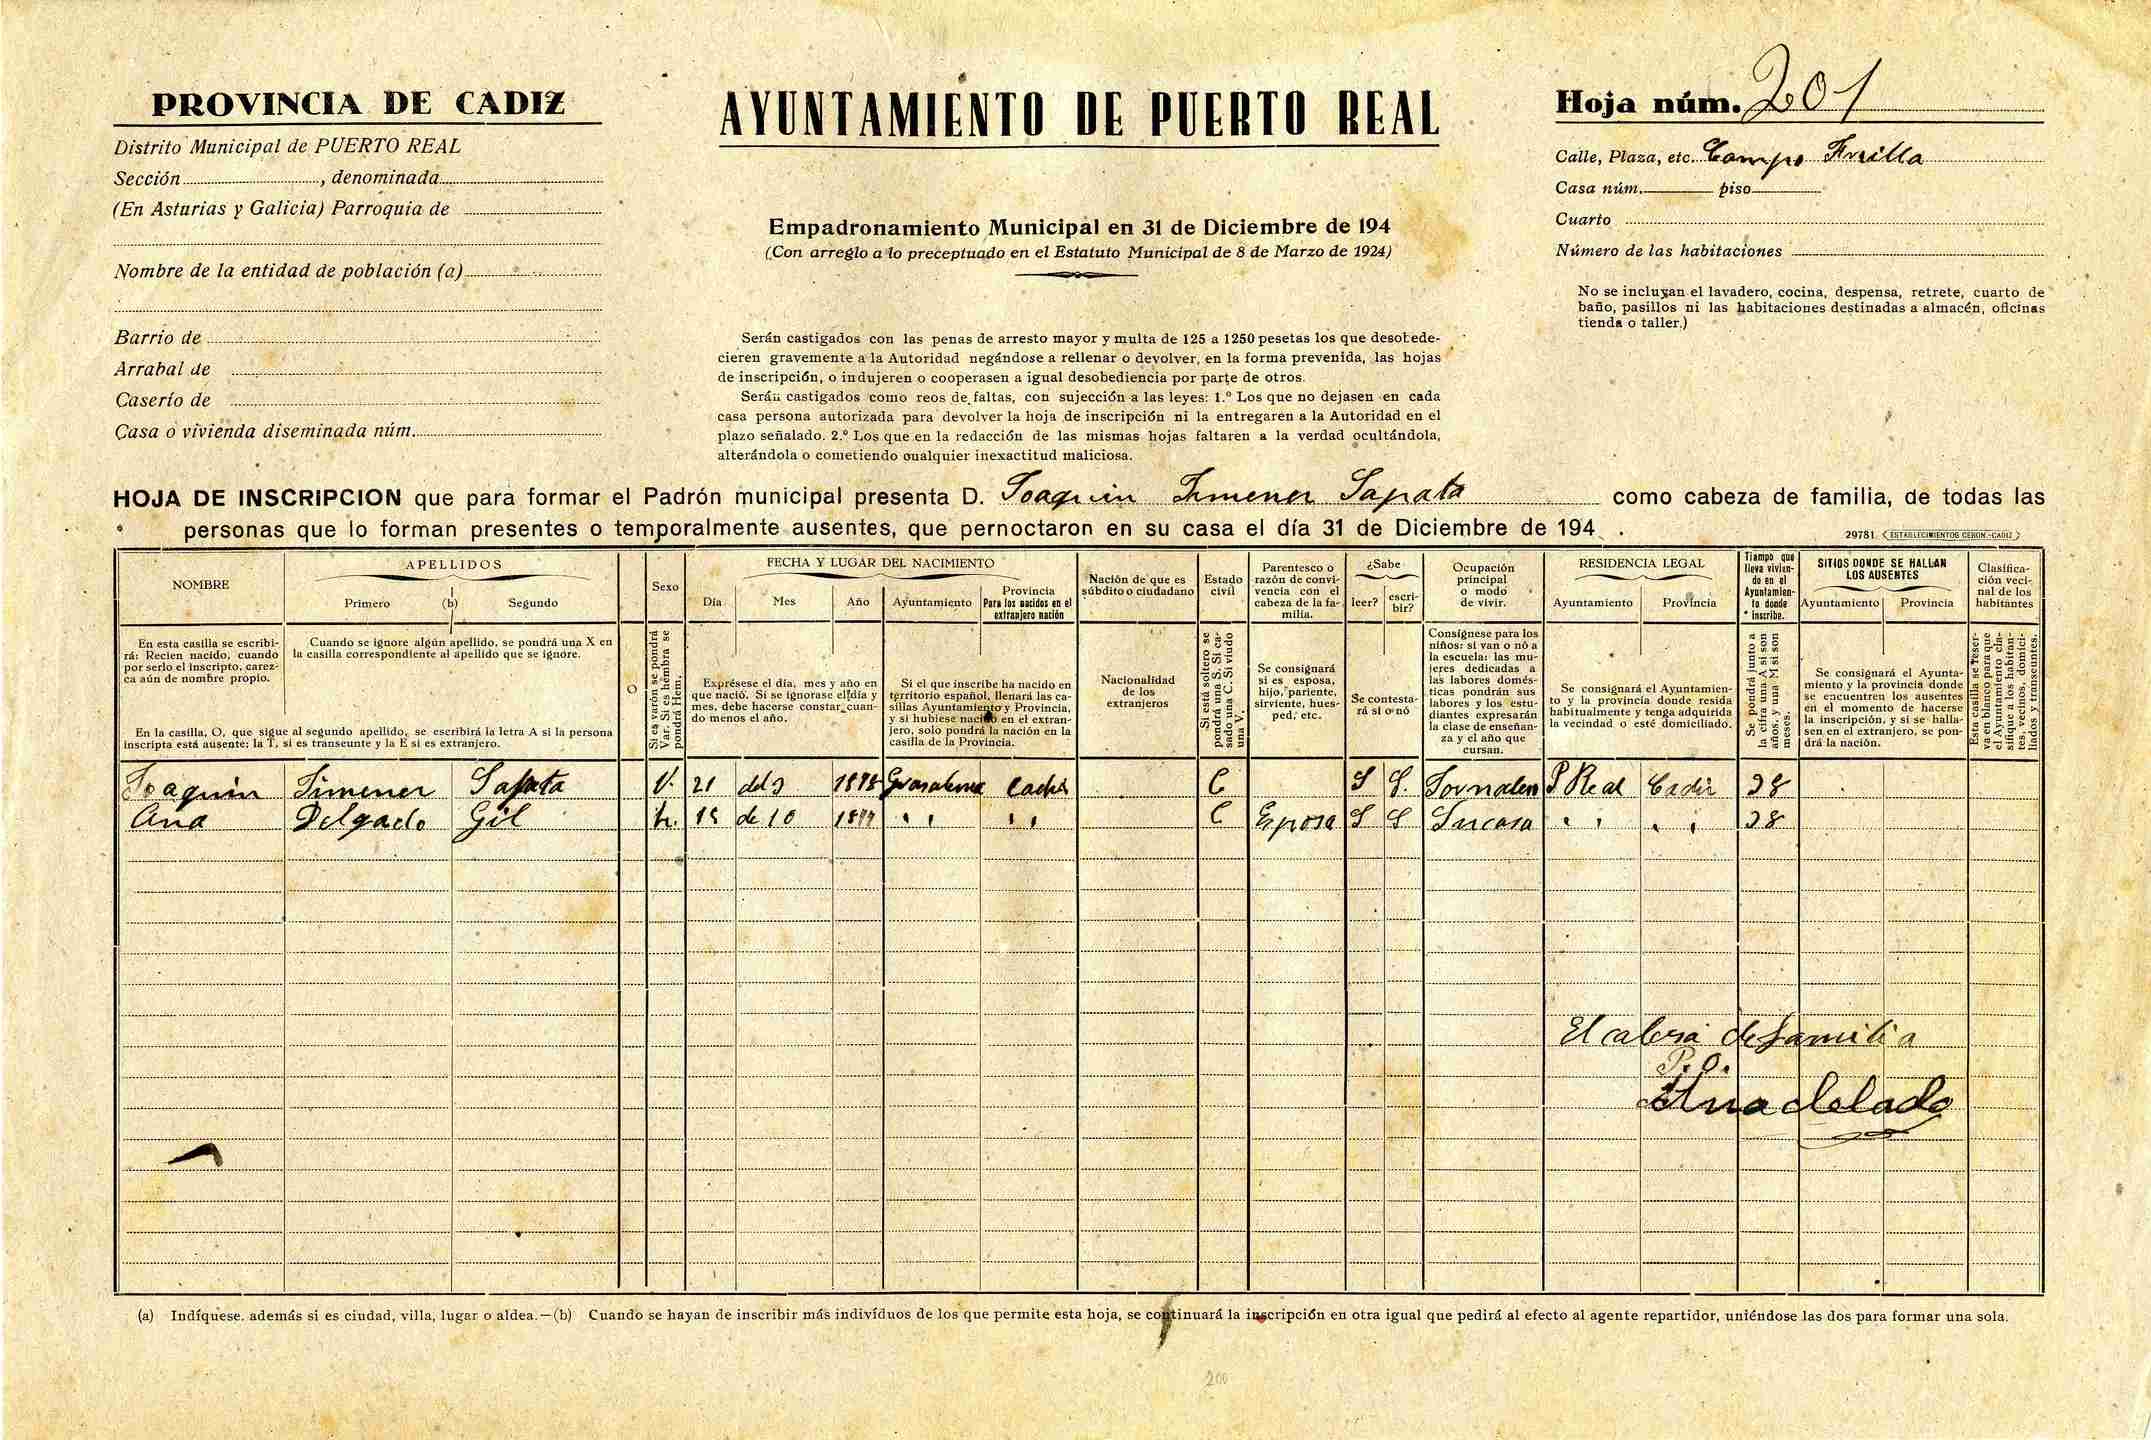 PROVINCIA DE CADIZ
Distrito Municipal de PUERTO REAL
Sección , denominada
(En Asturias y Galicia) Parroquia de
Nombre de la entidad de población (a)
Barrio de
Arrabal de
Caserío de
Casa o vivienda diseminada núm.
AYUNTAMIENTO DE PUERTO REAL
Empadronamiento Municipal en 31 de Diciembre de 194
(Con arreglo a lo preceptuado en el Estatuto Municipal de 8 de Marzo de 1924)
Serán castigados con las penas de arresto mayor y multa de 125 a 1250 pesetas los que desobede-
cieren gravemente a la Autoridad negándose a rellenar o devolver, en la forma prevenida, las hojas
de inscripción, o indujeren o cooperasen a igual desobediencia por parte de otros.
Serán castigados como reos de faltas, con sujección a las leyes: 1.º Los que no dejasen en cada
casa persona autorizada para devolver la hoja de inscripción ni la entregaren a la Autoridad en el
plazo señalado. 2.º Los que en la redacción de las mismas hojas faltaren a la verdad ocultándola,
alterándola o cometiendo cualquier inexactitud maliciosa.
Hoja núm. 201
Calle, Plaza, etc. Campo
Casa núm. piso
Cuarto
Número de las habitaciones
No se incluyan el lavadero, cocina, despensa, retrete, cuarto de
baño, pasillos ni las habitaciones destinadas a almacén, oficinas
tienda o taller.)
HOJA DE INSCRIPCION que para formar el Padrón municipal presenta D. Joaquin Jimener Sapata como cabeza de familia, de todas las
personas que lo forman presentes o temporalmente ausentes, que pernoctaron en su casa el día 31 de Diciembre de 194 .
29781. ESTABLECIMIENTOS CERON.-CADIZ
NOMBRE
En esta casilla se escribi-
rá: Recien nacido, cuando
por serlo el inscripto, carez-
ca aún de nombre propio.
APELLIDOS
Primero (b) Segundo
Cuando se ignore algún apellido, se pondrá una X en
la casilla correspondiente al apellido que se ignore.
En la casilla, O, que sigue al segundo apellido, se escribirá la letra A si la persona
inscripta está ausente: la T, si es transeunte y la E si es extranjero.
O
Sexo
Si es varón se pondrá
Var. Si es hembra se
pondrá Hem.
FECHA Y LUGAR DEL NACIMIENTO
Día Mes Año Ayuntamiento
Provincia
Para los nacidos en el
extranjero nación
Exprésese el día, mes y año en
que nació. Si se ignorase el día y
mes, debe hacerse constar cuan-
do menos el año.
Si el que inscribe ha nacido en
territorio español, llenará las ca-
sillas Ayuntamiento y Provincia,
y si hubiese nacido en el extran-
jero, solo pondrá la nación en la
casilla de la Provincia.
Nación de que es
súbdito o ciudadano
Nacionalidad
de los
extranjeros
Estado
civil
Si está soltero se
pondrá una S. Si ca-
sado una C. Si viudo
una V.
Parentesco o
razón de convi-
vencia con el
cabeza de la fa-
milia.
Se consignará
si es esposa,
hijo, pariente,
sirviente, hues-
ped, etc.
¿Sabe
leer? escri-
bir?
Se contesta-
rá sí o nó
Ocupación
principal
o modo
de vivir.
Consígnese para los
niños: si van o nó a
la escuela: las mu-
jeres dedicadas a
las labores domés-
ticas pondrán sus
labores y los estu-
diantes expresarán
la clase de enseñan-
za y el año que
cursan.
RESIDENCIA LEGAL
Ayuntamiento Provincia
Se consignará el Ayuntamien-
to y la provincia donde resida
habitualmente y tenga adquirida
la vecindad o esté domiciliado.
Tiempo que
lleva vivien-
do en el
Ayuntamien-
to donde
inscribe.
Se pondrá junto a
la cifra una A si son
años, y una M si son
meses.
SITIOS DONDE SE HALLAN
LOS AUSENTES
Ayuntamiento Provincia
Se consignará el Ayunta-
miento y la provincia donde
se encuentren los ausentes
en el momento de hacerse
la inscripción, y si se halla-
sen en el extranjero, se pon-
drá la nación.
Clasifica-
ción veci-
nal de los
habitantes
Esta casilla se reser-
va en blanco para que
el Ayuntamiento cla-
sifique a los habitan-
tes, vecinos, domici-
liados y transeuntes.
Joaquin Jimener Sapata V. 21 del 9 1878 Grasalema Cadis C S S. Jornalero P Real Cadiz 28
Ana Delgado Gil h. 15 de 10 18 " " C Esposa S S Sucasa " " 28
El cabesa de familia
P. O.
Ana delado
(a) Indíquese además si es ciudad, villa, lugar o aldea.—(b) Cuando se hayan de inscribir más indivíduos de los que permite esta hoja, se continuará la inscripción en otra igual que pedirá al efecto al agente repartidor, uniéndose las dos para formar una sola.
200